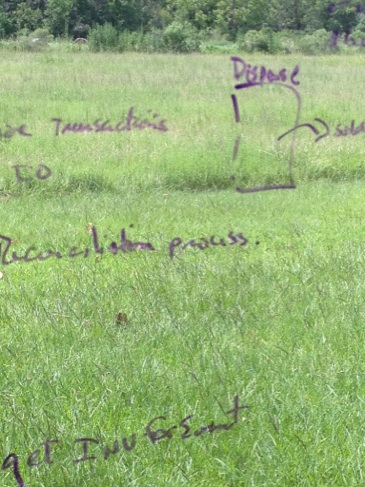 Dispense
Transactions
TO
Reconciliation process.
get INV For Event